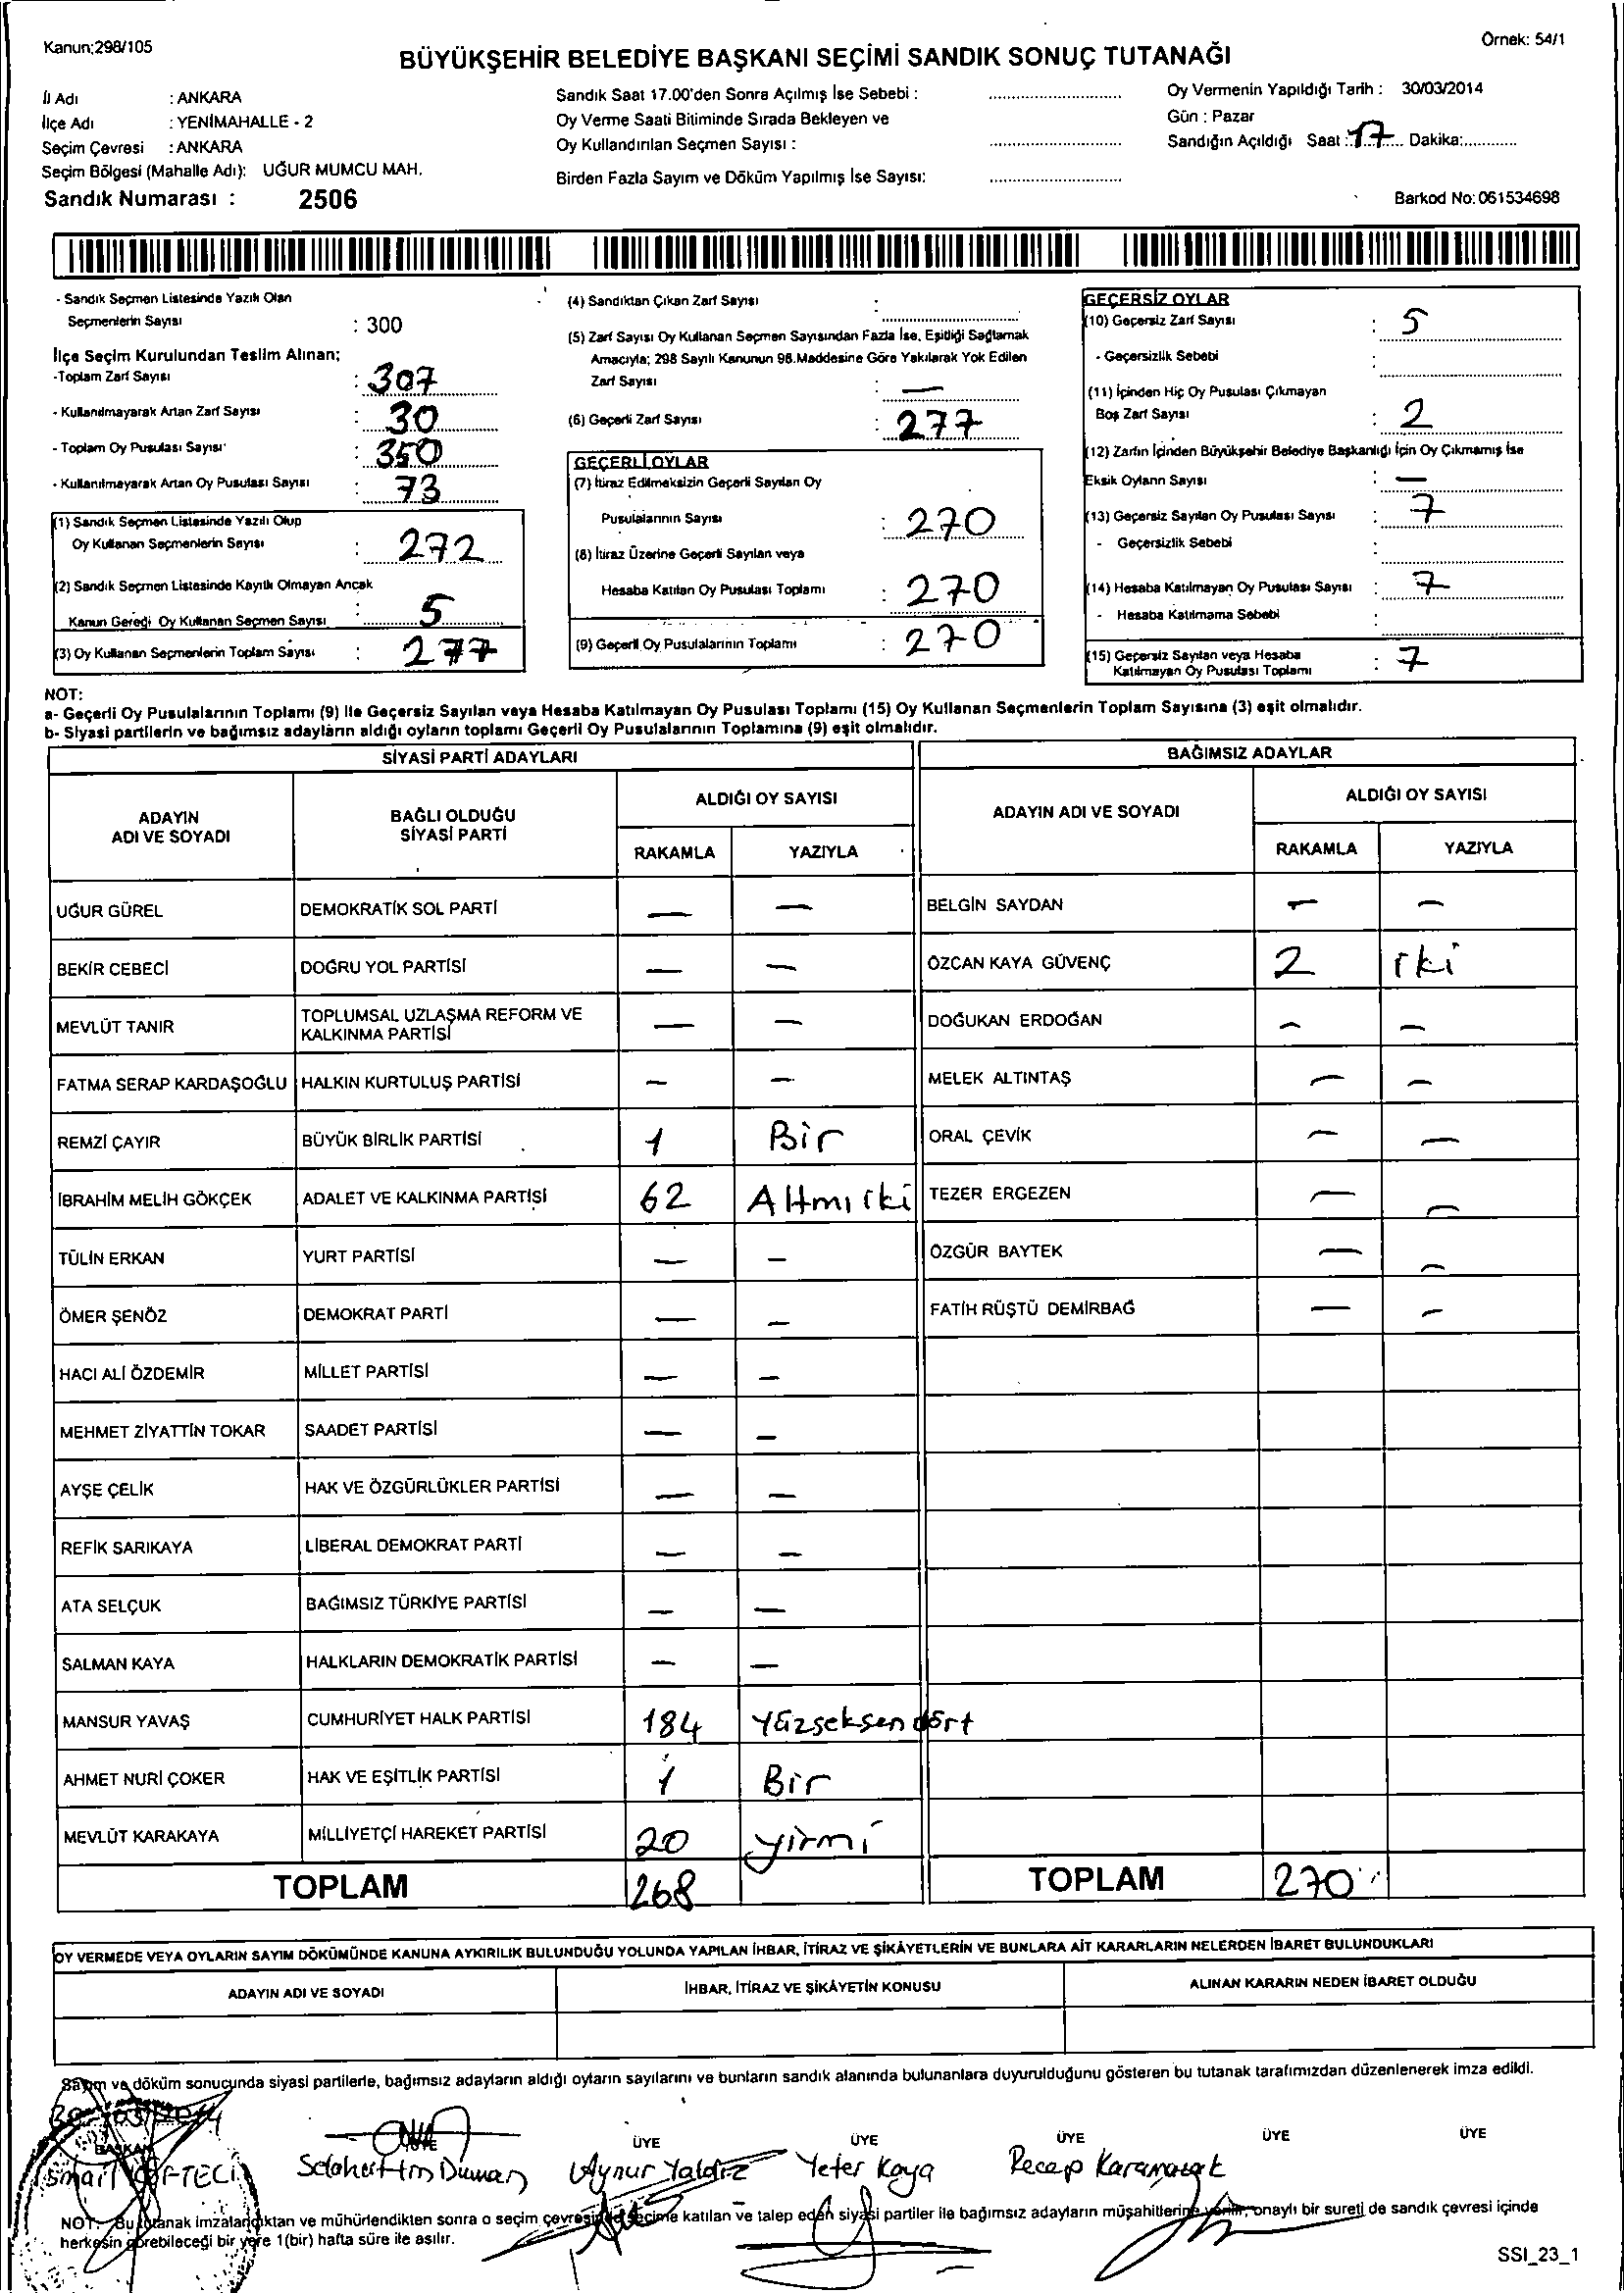 Kanun;298/105
Örnek: 54/1
BÜYÜKŞEHİR BELEDİYE BAŞKANI SEÇİMİ SANDIK SONUÇ TUTANAĞI
İl Adı : ANKARA
İlçe Adı : YENİMAHALLE - 2
Seçim Çevresi : ANKARA
Seçim Bölgesi (Mahalle Adı): UĞUR MUMCU MAH.
Sandık Numarası : 2506
Sandık Saat 17.00'den Sonra Açılmış İse Sebebi :
Oy Verme Saati Bitiminde Sırada Bekleyen ve
Oy Kullandırılan Seçmen Sayısı :
Birden Fazla Sayım ve Döküm Yapılmış İse Sayısı:
Oy Vermenin Yapıldığı Tarih : 30/03/2014
Gün : Pazar
Sandığın Açıldığı Saat : 17 Dakika:
Barkod No: 061534698
- Sandık Seçmen Listesinde Yazılı Olan
Seçmenlerin Sayısı : 300
İlçe Seçim Kurulundan Teslim Alınan;
-Toplam Zarf Sayısı : 307
- Kullanılmayarak Artan Zarf Sayısı : 30
- Toplam Oy Pusulası Sayısı : 350
- Kullanılmayarak Artan Oy Pusulası Sayısı : 73
(1) Sandık Seçmen Listesinde Yazılı Olup
Oy Kullanan Seçmenlerin Sayısı : 272
(2) Sandık Seçmen Listesinde Kayıtlı Olmayan Ancak
Kanun Gereği Oy Kullanan Seçmen Sayısı : 5
(3) Oy Kullanan Seçmenlerin Toplam Sayısı : 277
(4) Sandıktan Çıkan Zarf Sayısı :
(5) Zarf Sayısı Oy Kullanan Seçmen Sayısından Fazla İse, Eşitliği Sağlamak
Amacıyla; 298 Sayılı Kanunun 98.Maddesine Göre Yakılarak Yok Edilen
Zarf Sayısı : —
(6) Geçerli Zarf Sayısı : 277
GEÇERLİ OYLAR
(7) İtiraz Edilmeksizin Geçerli Sayılan Oy
Pusulalarının Sayısı : 270
(8) İtiraz Üzerine Geçerli Sayılan veya
Hesaba Katılan Oy Pusulası Toplamı : 270
(9) Geçerli Oy Pusulalarının Toplamı : 270
GEÇERSİZ OYLAR
(10) Geçersiz Zarf Sayısı : 5
- Geçersizlik Sebebi :
(11) İçinden Hiç Oy Pusulası Çıkmayan
Boş Zarf Sayısı : 2
(12) Zarfın İçinden Büyükşehir Belediye Başkanlığı İçin Oy Çıkmamış İse
Eksik Oyların Sayısı : —
(13) Geçersiz Sayılan Oy Pusulası Sayısı : 7
- Geçersizlik Sebebi :
(14) Hesaba Katılmayan Oy Pusulası Sayısı : 7
- Hesaba Katılmama Sebebi :
(15) Geçersiz Sayılan veya Hesaba
Katılmayan Oy Pusulası Toplamı : 7
NOT:
a- Geçerli Oy Pusulalarının Toplamı (9) ile Geçersiz Sayılan veya Hesaba Katılmayan Oy Pusulası Toplamı (15) Oy Kullanan Seçmenlerin Toplam Sayısına (3) eşit olmalıdır.
b- Siyasi partilerin ve bağımsız adayların aldığı oyların toplamı Geçerli Oy Pusulalarının Toplamına (9) eşit olmalıdır.
SİYASİ PARTİ ADAYLARI
ADAYIN ADI VE SOYADI
BAĞLI OLDUĞU SİYASİ PARTİ
ALDIĞI OY SAYISI
RAKAMLA YAZIYLA
UĞUR GÜREL DEMOKRATİK SOL PARTİ — —
BEKİR CEBECİ DOĞRU YOL PARTİSİ — —
MEVLÜT TANIR TOPLUMSAL UZLAŞMA REFORM VE KALKINMA PARTİSİ — —
FATMA SERAP KARDAŞOĞLU HALKIN KURTULUŞ PARTİSİ — —
REMZİ ÇAYIR BÜYÜK BİRLİK PARTİSİ 1 Bir
İBRAHİM MELİH GÖKÇEK ADALET VE KALKINMA PARTİSİ 62 Altmı iki
TÜLİN ERKAN YURT PARTİSİ — —
ÖMER ŞENÖZ DEMOKRAT PARTİ — —
HACI ALİ ÖZDEMİR MİLLET PARTİSİ — —
MEHMET ZİYATTİN TOKAR SAADET PARTİSİ — —
AYŞE ÇELİK HAK VE ÖZGÜRLÜKLER PARTİSİ — —
REFİK SARIKAYA LİBERAL DEMOKRAT PARTİ — —
ATA SELÇUK BAĞIMSIZ TÜRKİYE PARTİSİ — —
SALMAN KAYA HALKLARIN DEMOKRATİK PARTİSİ — —
MANSUR YAVAŞ CUMHURİYET HALK PARTİSİ 184 Yüzseksendört
AHMET NURİ ÇOKER HAK VE EŞİTLİK PARTİSİ 1 Bir
MEVLÜT KARAKAYA MİLLİYETÇİ HAREKET PARTİSİ 20 yirmi
TOPLAM 268
BAĞIMSIZ ADAYLAR
ADAYIN ADI VE SOYADI
ALDIĞI OY SAYISI
RAKAMLA YAZIYLA
BELGİN SAYDAN — —
ÖZCAN KAYA GÜVENÇ 2 iki
DOĞUKAN ERDOĞAN — —
MELEK ALTINTAŞ — —
ORAL ÇEVİK — —
TEZER ERGEZEN — —
ÖZGÜR BAYTEK — —
FATİH RÜŞTÜ DEMİRBAĞ — —
TOPLAM 270
OY VERMEDE VEYA OYLARIN SAYIM DÖKÜMÜNDE KANUNA AYKIRILIK BULUNDUĞU YOLUNDA YAPILAN İHBAR, İTİRAZ VE ŞİKÂYETLERİN VE BUNLARA AİT KARARLARIN NELERDEN İBARET BULUNDUKLARI
ADAYIN ADI VE SOYADI
İHBAR, İTİRAZ VE ŞİKÂYETİN KONUSU
ALINAN KARARIN NEDEN İBARET OLDUĞU
Sayım ve döküm sonucunda siyasi partilerle, bağımsız adayların aldığı oyların sayılarını ve bunların sandık alanında bulunanlara duyurulduğunu gösteren bu tutanak tarafımızdan düzenlenerek imza edildi.
BAŞKAN ÜYE ÜYE ÜYE ÜYE ÜYE
Selahattin Duman Aynur Yaldız Yeter Kaya Recep
NOT: Bu tutanak imzalandıktan ve mühürlendikten sonra o seçim çevresinde seçime katılan ve talep eden siyasi partiler ile bağımsız adayların müşahitlerine onaylı bir sureti de sandık çevresi içinde
herkesin görebileceği bir yere 1(bir) hafta süre ile asılır.
SSI_23_1